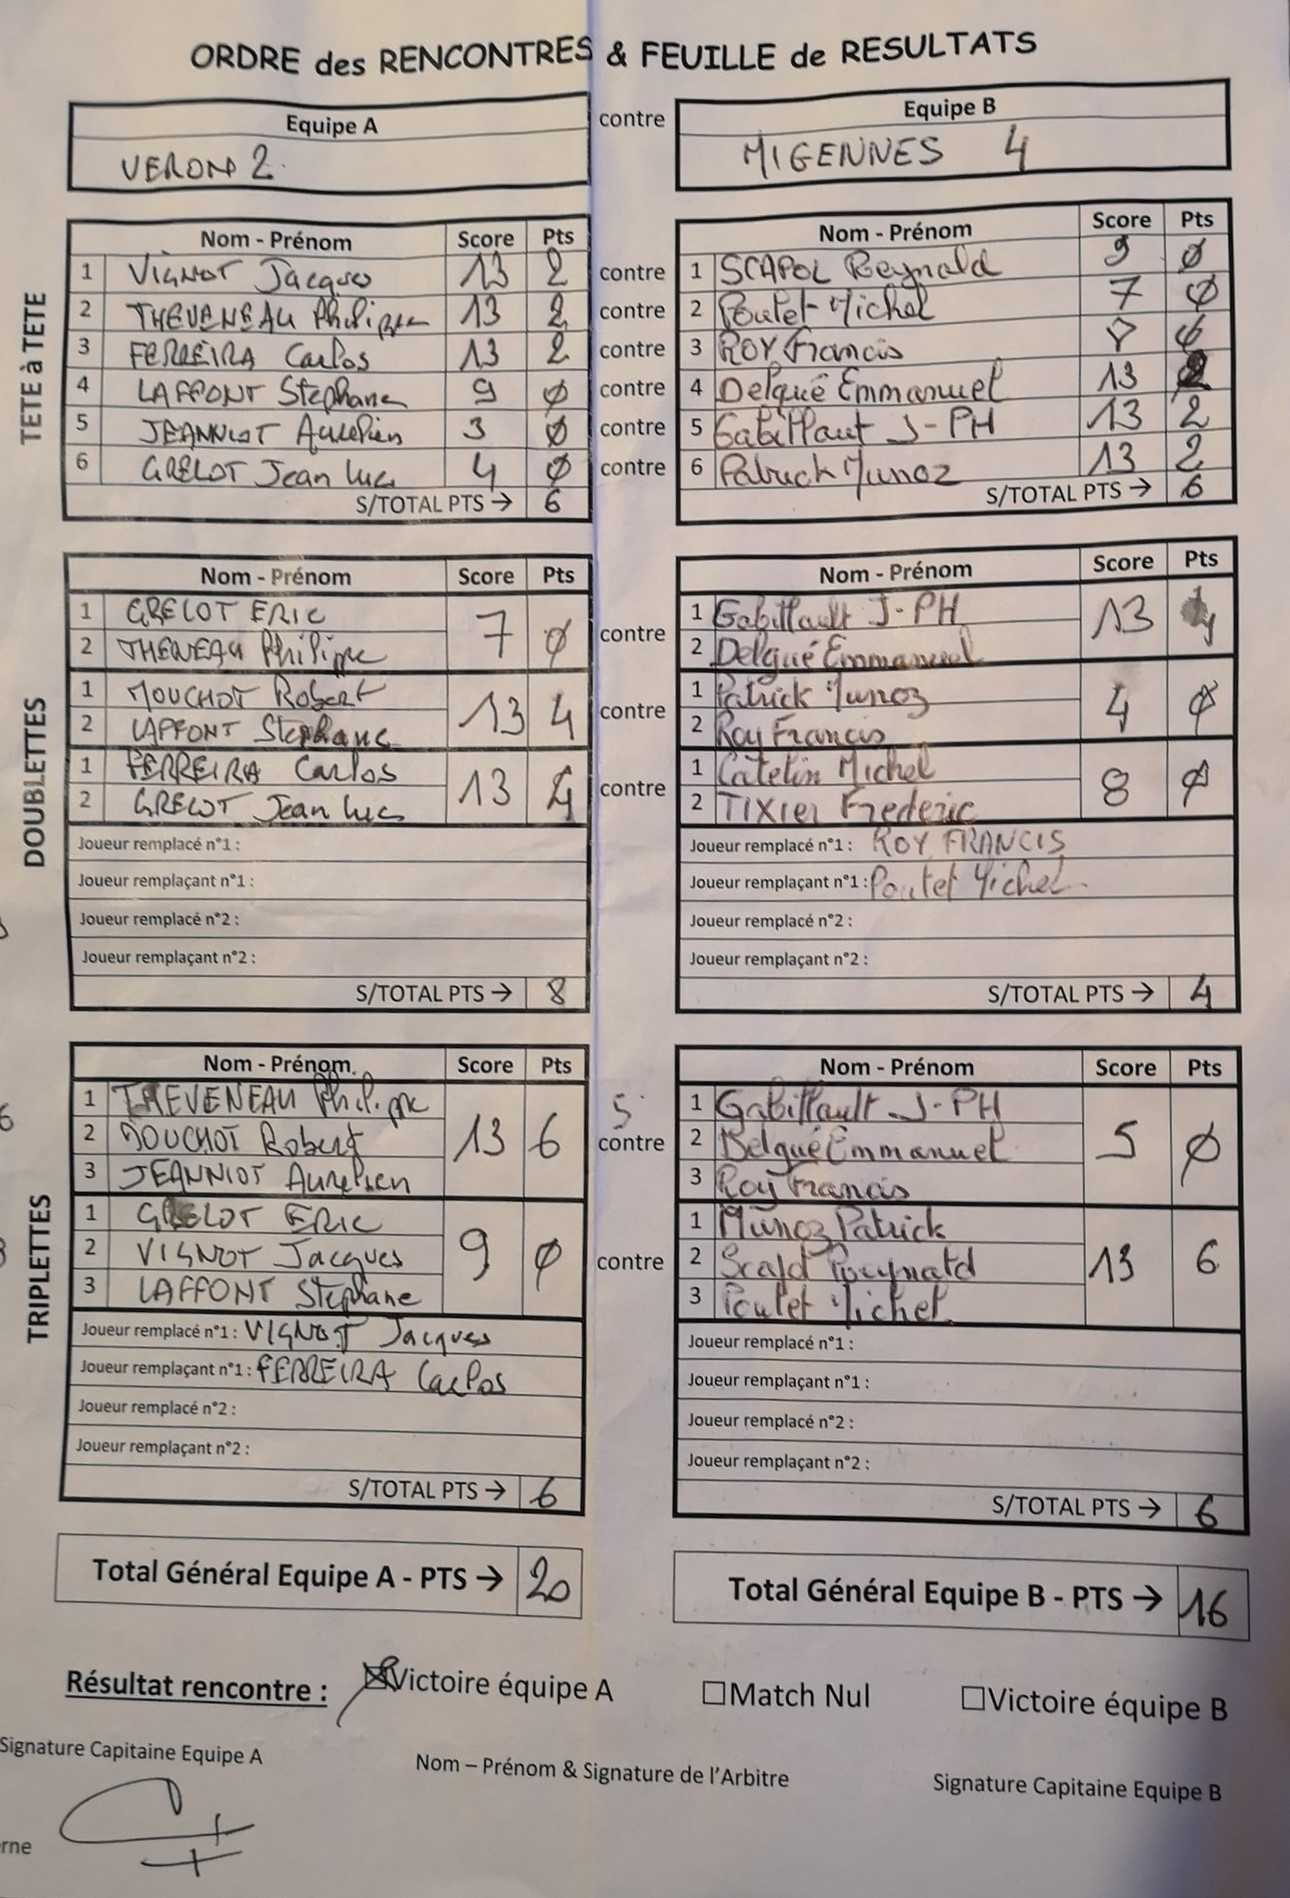 ORDRE des RENCONTRES & FEUILLE de RESULTATS
Equipe A contre Equipe B
VERON 2. MIGENNES 4
TETE à TETE
Nom - Prénom Score Pts Nom - Prénom Score Pts
1 VIGNOT Jacques 13 2 contre 1 SCAPOL Reynald 9 0
2 THEVENEAU Philippe 13 2 contre 2 Poutet Michel 7 0
3 FERREIRA Carlos 13 2 contre 3 ROY Francis 0
4 LAFFONT Stephane 9 0 contre 4 Delqué Emmanuel 13 2
5 JEANNIOT Aurelien 3 0 contre 5 Gabillaut J-PH 13 2
6 GRELOT Jean Luc 4 0 contre 6 Patrick Munoz 13 2
S/TOTAL PTS → 6 S/TOTAL PTS → 6
DOUBLETTES
Nom - Prénom Score Pts Nom - Prénom Score Pts
1 GRELOT ERIC 7 0 contre 1 Gabillault J-PH 13 4
2 THENEAU Philippe 2 Delqué Emmanuel
1 MOUCHOT Robert 13 4 contre 1 Patrick Munoz 4 0
2 LAFFONT Stephane 2 Roy Francis
1 FERREIRA Carlos 13 4 contre 1 Catelin Michel 8 0
2 GRELOT Jean Luc 2 TIXIER Frederic
Joueur remplacé n°1 : Joueur remplacé n°1 : ROY FRANCIS
Joueur remplaçant n°1 : Joueur remplaçant n°1 : Poutet Michel
Joueur remplacé n°2 : Joueur remplacé n°2 :
Joueur remplaçant n°2 : Joueur remplaçant n°2 :
S/TOTAL PTS → 8 S/TOTAL PTS → 4
TRIPLETTES
Nom - Prénom Score Pts Nom - Prénom Score Pts
1 THEVENEAU Philippe 13 6 5 contre 1 Gabillault J-PH 5 0
2 MOUCHOT Robert 2 Delqué Emmanuel
3 JEANNIOT Aurelien 3 Roy Francis
1 GRELOT ERIC 9 0 contre 1 Munoz Patrick 13 6
2 VIGNOT Jacques 2 Reynald
3 LAFFONT Stephane 3 Poutet Michel
Joueur remplacé n°1 : VIGNOT Jacques Joueur remplacé n°1 :
Joueur remplaçant n°1 : FERREIRA Carlos Joueur remplaçant n°1 :
Joueur remplacé n°2 : Joueur remplacé n°2 :
Joueur remplaçant n°2 : Joueur remplaçant n°2 :
S/TOTAL PTS → 6 S/TOTAL PTS → 6
Total Général Equipe A - PTS → 20 Total Général Equipe B - PTS → 16
Résultat rencontre : ☒Victoire équipe A ☐Match Nul ☐Victoire équipe B
Signature Capitaine Equipe A Nom – Prénom & Signature de l'Arbitre Signature Capitaine Equipe B
rne